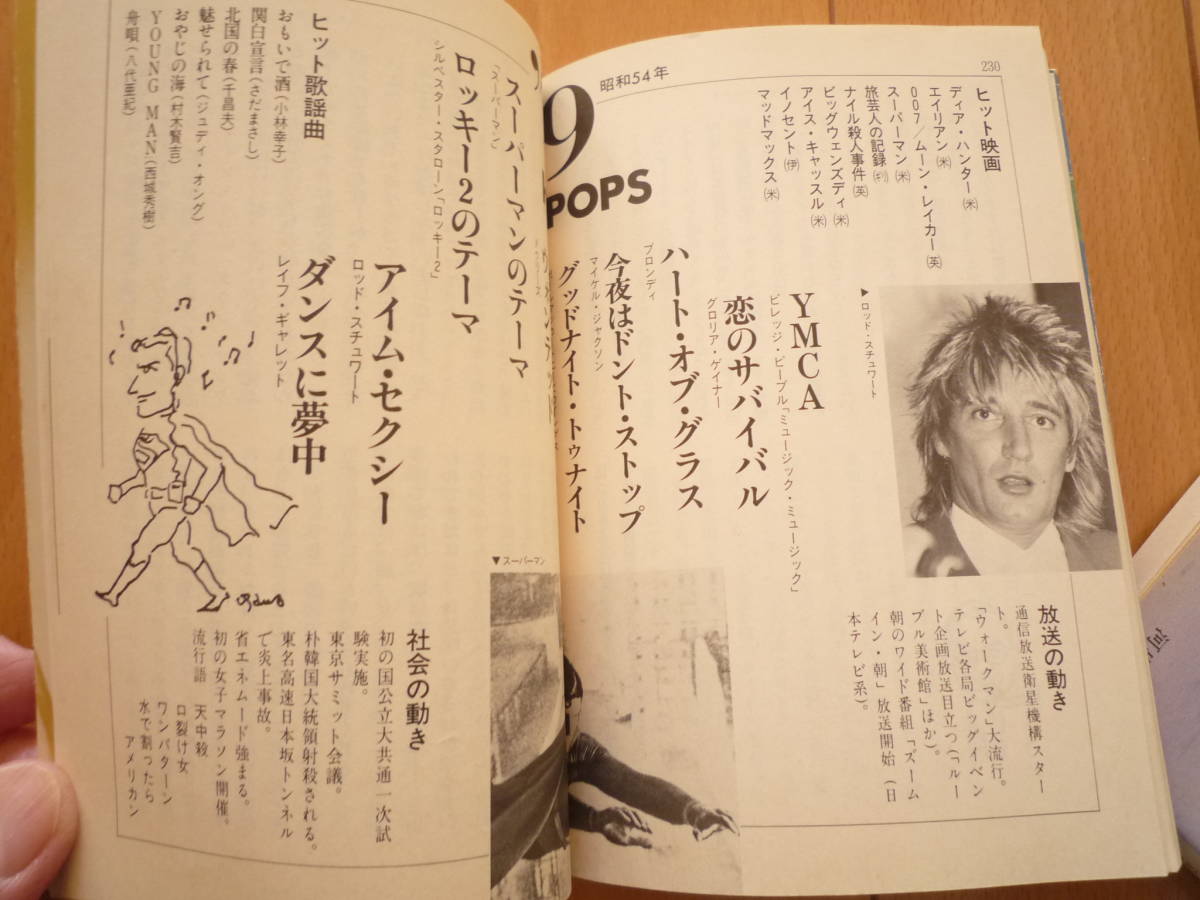 230
昭和54年
9
POPS
ヒット映画
ディア・ハンター㊍(米)
エイリアン(米)
007/ムーン・レイカー(英)
スーパーマン(米)
旅芸人の記録(ギ)
ナイル殺人事件(英)
ビッグウェンズディ(米)
アイス・キャッスル(米)
イノセント(伊)
マッドマックス(米)
▶ロッド・スチュワート
YMCA
ビレッジ・ピープル「ミュージック・ミュージック」
恋のサバイバル
グロリア・ゲイナー
ハート・オブ・グラス
ブロンディ
今夜はドント・ストップ
マイケル・ジャクソン
グッドナイト・トゥナイト
放送の動き
通信放送衛星機構スター
ト。
「ウォークマン」大流行。
テレビ各局ビッグイベン
ト企画放送目立つ(「ルー
ブル美術館」ほか)。
朝のワイド番組「ズーム
イン・朝」放送開始(日
本テレビ系)。
スーパーマンのテーマ
「スーパーマン」
ロッキー2のテーマ
シルベスター・スタローン「ロッキー2」
アイム・セクシー
ロッド・スチュワート
ダンスに夢中
レイフ・ギャレット
ヒット歌謡曲
おもいで酒(小林幸子)
関白宣言(さだまさし)
北国の春(千昌夫)
魅せられて(ジュディ・オング)
おやじの海(村木賢吉)
YOUNG MAN(西城秀樹)
舟唄(八代亜紀)
▼スーパーマン
社会の動き
初の国公立大共通一次試
験実施。
東京サミット会議。
朴韓国大統領射殺される。
東名高速日本坂トンネル
で炎上事故。
省エネムード強まる。
初の女子マラソン開催。
流行語 天中殺
口裂け女
ワンパターン
水で割ったら
アメリカン